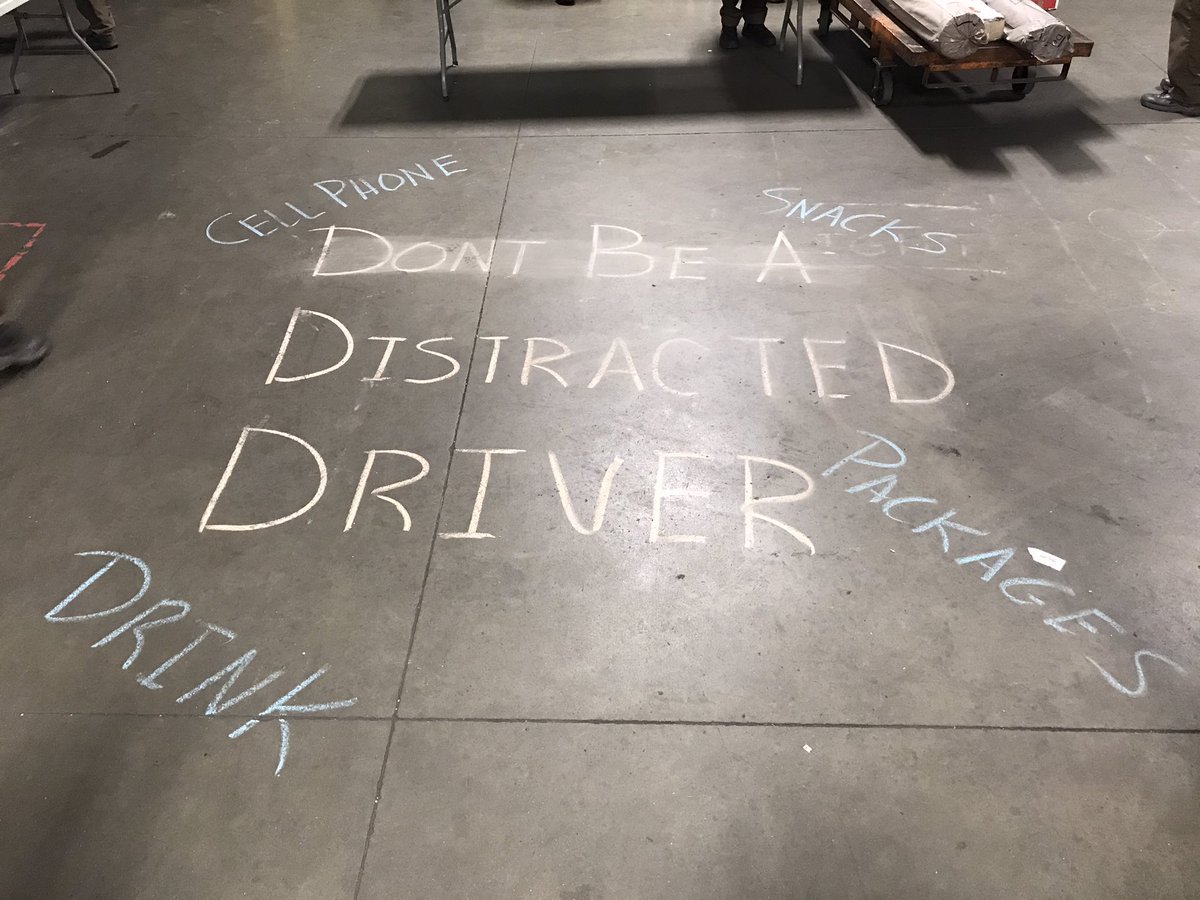 CELL PHONE
SNACKS
DONT BE A
DISTRACTED
DRIVER
PACKAGES
DRINK